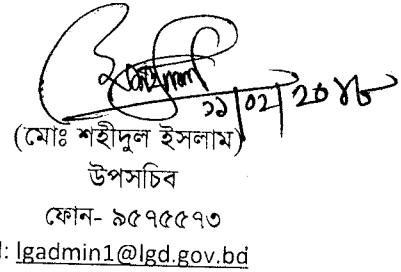 (মোঃ শহীদুল ইসলাম)
উপসচিব
ফোন- ৯৫৭৫৫৭৩
l: lgadmin1@lgd.gov.bd